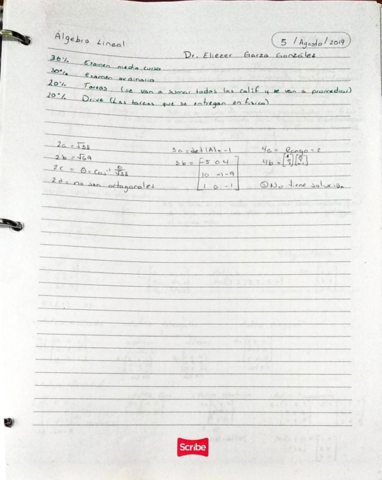 Algebra Lineal
5 / Agosto / 2019
Dr. Eliezer Garza González
30% Examen medio curso
30% Examen ordinario
20% Tareas (se van a sumar todas las calif y se van a promediar)
20% (Las tareas que se entregan en físico)
2a =
3a = det(A) = -1
4a = Rango = 2
2b = √69
3b = [-5 0 4
10 -1 -9
1 0 -1]
4b =
2c = θ = cos⁻¹
2d = no son ortogonales
5) No tiene solución
Scribe